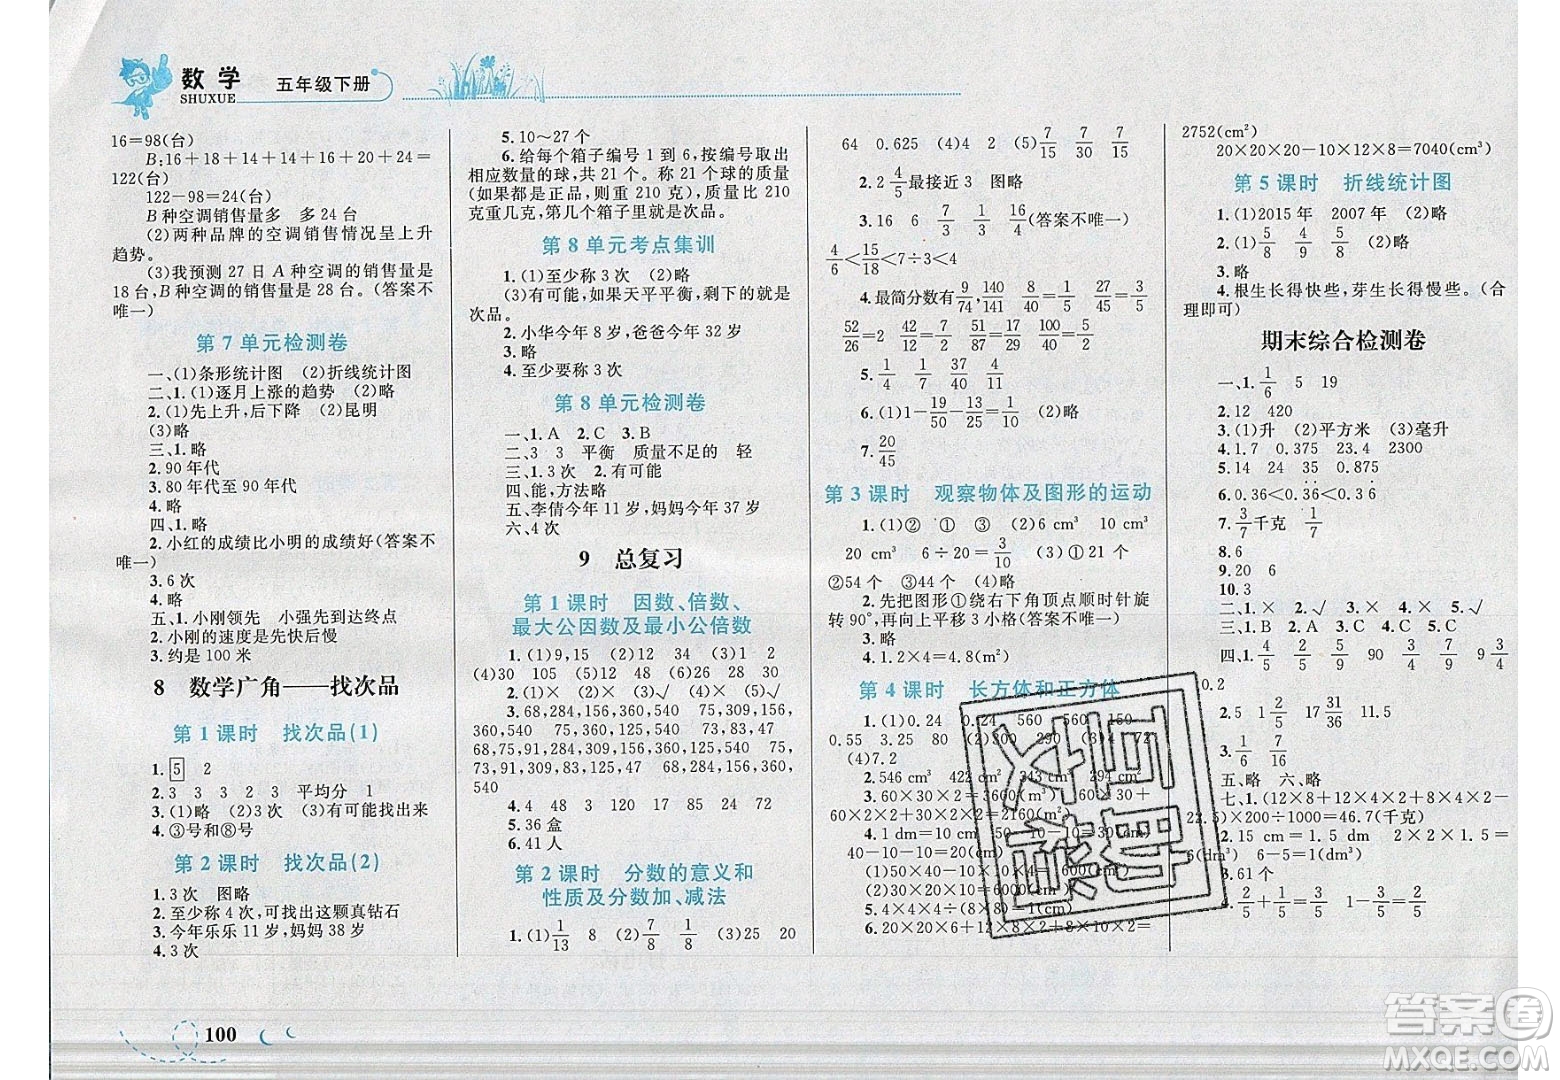 数学
SHUXUE
五年级下册
16=98(台)
B:16+18+14+14+16+20+24=
122(台)
122-98=24(台)
B 种空调销售量多 多 24 台
(2)两种品牌的空调销售情况呈上升
趋势。
(3)我预测 27 日 A 种空调的销售量是
18 台,B 种空调的销售量是 28 台。(答案不
唯一)
第 7 单元检测卷
一、(1)条形统计图 (2)折线统计图
二、1.(1)逐月上涨的趋势 (2)略
2.(1)先上升,后下降 (2)昆明
(3)略
三、1.略
2.90 年代
3.80 年代至 90 年代
4.略
四、1.略
2.小红的成绩比小明的成绩好(答案不
唯一)
3.6 次
4.略
五、1.小刚领先 小强先到达终点
2.小刚的速度是先快后慢
3.约是 100 米
8 数学广角——找次品
第 1 课时 找次品(1)
1.5 2
2.3 3 3 2 3 平均分 1
3.(1)略 (2)3 次 (3)有可能找出来
4.③号和⑧号
第 2 课时 找次品(2)
1.3 次 图略
2.至少称 4 次,可找出这颗真钻石
3.今年乐乐 11 岁,妈妈 38 岁
4.3 次
100
5.10～27 个
6.给每个箱子编号 1 到 6,按编号取出
相应数量的球,共 21 个。称 21 个球的质量
(如果都是正品,则重 210 克),比 210
克重几克,第几个箱子里就是次品。
第 8 单元考点集训
1.(1)至少称 3 次 (2)略
(3)有可能,如果天平平衡,剩下的就是
次品。
2.小华今年 8 岁,爸爸今年 32 岁
3.略
4.至少要称 3 次
第 8 单元检测卷
一、1.A 2.C 3.B
二、3 3 平衡 质量不足的 轻
三、1.3 次 2.有可能
四、能,方法略
五、李倩今年 11 岁,妈妈今年 37 岁
六、4 次
9 总复习
第 1 课时 因数、倍数、
最大公因数及最小公倍数
1.(1)9,15 (2)12 34 (3)48
(4)30 105 (5)16 26 28 30
2.(1)√ (2)× (3)× (4)× (5)√
3.68,284,156,360,540 75,205,
435,360,125,540 68,284,156,360,540
68,75,91,284,156,360,125,97,540
73,97,91,435,360,125,97,540 360,
540
4.4 48 3 120 15 24 72
5.36 盒
6.41 人
第 2 课时 分数的意义和
性质及分数加、减法
1.(1)1/13 8 (2)7/8 1/8 (3)25 20
64 0.625 (4)4 2 (5)7/15 7/30 7/15
2.2 4/5最接近 3 图略
3.16 6 7/3 1/3 16/4(答案不唯一)
4/6<15/18<7÷3<4
4.最简分数有9/74,140/141 8/40=1/5 27/45=3/5
52/26=2 20/45=4/9 17/34=1/2 100/40=5/2
5.1/4 1/37 37/40 4/11
6.(1)1-19/50-13/50=9/25 (2)略
7.20/45
第 3 课时 观察物体及图形的运动
1.(1)② ① ③ (2)6 cm³ 10 cm³
20 cm³ 6÷20=3/10 (3)①21 个
②54 个 ③44 个 (4)略
2.先把图形①绕右下角顶点顺时针旋
转 90°,再向上平移 3 小格(答案不唯一)
3.略
4.1.2×4=4.8(m²)
第 4 课时 长方体和正方体
1.(1)0.24 0.24 560 560 150
0.55 3.25 80 (2)300 290 (3)4
(4)7.2
2.546 cm³ 422 cm² 343 cm³ 294 cm²
3.60×30×2=3600(m²) 60×30+
60×2×2+30×2×2=2160(m²)
4.1 dm=10 cm 50-10-10=30(cm)
40-10-10=20(cm)
(1)50×40-10×10×4=1600(cm²)
(2)30×20×10=6000(cm³)
5.4×4×4÷(8×8)=1(cm)
6.20×20×6+12×8×2+8×10×2=
2752(cm²)
20×20×20-10×12×8=7040(cm³)
第 5 课时 折线统计图
1.(1)2015 年 2007 年 (2)略
2.(1)5/8 4/9 5/8 (2)略
3.略
4.根生长得快些,芽生长得慢些。(合
理即可)
期末综合检测卷
一、1.1/6 5 19
2.12 420
3.(1)升 (2)平方米 (3)毫升
4.1.7 0.375 23.4 2300
5.14 24 35 0.875
7.3/7千克 1/7
8.6
9.20
10.3
二、1.× 2.√ 3.× 4.× 5.×
三、1.B 2.A 3.A 4.C 5.C
四、1.4/5 2/5 1/5 90 3/4 9 3/4
0.2
2.5 1 2/5 17 31/36 11.5
3.1/6 7/16
五、略 六、略
七、1.(12×8+12×4×2+8×4×2-
22.5)×200÷1000=46.7(千克)
2.15 cm=1.5 dm 2×2×1.5=
6(dm³) 6-5=1(dm³)
3.61 个
答案圈
MXQE.COM